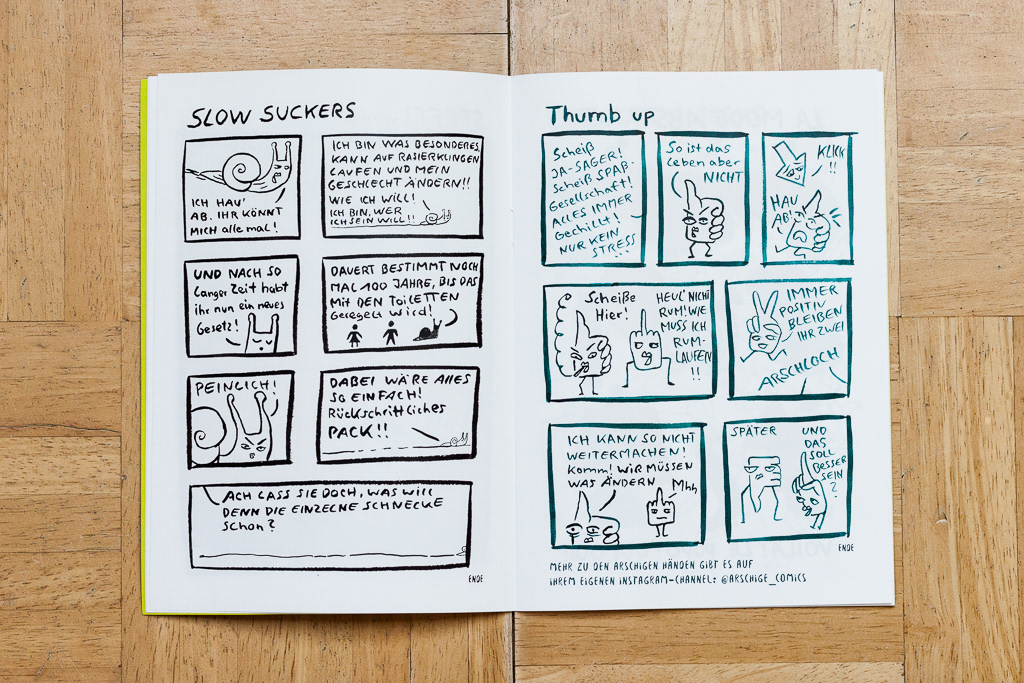 SLOW SUCKERS
ICH HAU'
AB. IHR KÖNNT
MICH alle mal!
ICH BIN WAS BESONDERES,
KANN AUF RASIERKLINGEN
LAUFEN UND MEIN
GESCHLECHT ÄNDERN!!
WIE ICH WILL!
ICH BIN, WER
ICH SEIN WILL!!
UND NACH SO
Langer Zeit habt
ihr nun ein neues
Gesetz!
DAUERT BESTIMMT NOCH
MAL 100 JAHRE, BIS DAS
Mit DEN TOILETTEN
Geregelt wird!
PEINLICH!
DABEI WÄRE ALLES
SO EINFACH!
Rückschrittliches
PACK!!
ACH LASS SIE DOCH, WAS WILL
DENN DIE EINZELNE SCHNECKE
SCHON?
ENDE
Thumb up
Scheiß
JA-SAGER!
Scheiß SPAß-
Gesellschaft!
ALLES IMMER
Gechillt!
NUR KEIN
STRESS!!!
So ist das
Leben aber
NICHT
KLICK
!!
HAU
AB!
Scheiße
Hier!
HEUL' NICHT
RUM! WIE
MUSS ICH
RUM-
LAUFEN
!!
IMMER
POSITIV
BLEIBEN
IHR ZWEI
ARSCHLOCH
ICH KANN SO NICHT
WEITERMACHEN!
Komm! WIR MÜSSEN
WAS ÄNDERN
Mhh
SPÄTER
UND
DAS
SOLL
BESSER
SEIN?
ENDE
MEHR ZU DEN ARSCHIGEN HÄNDEN GIBT ES AUF
IHREM EIGENEN INSTAGRAM-CHANNEL: @ARSCHIGE_COMICS